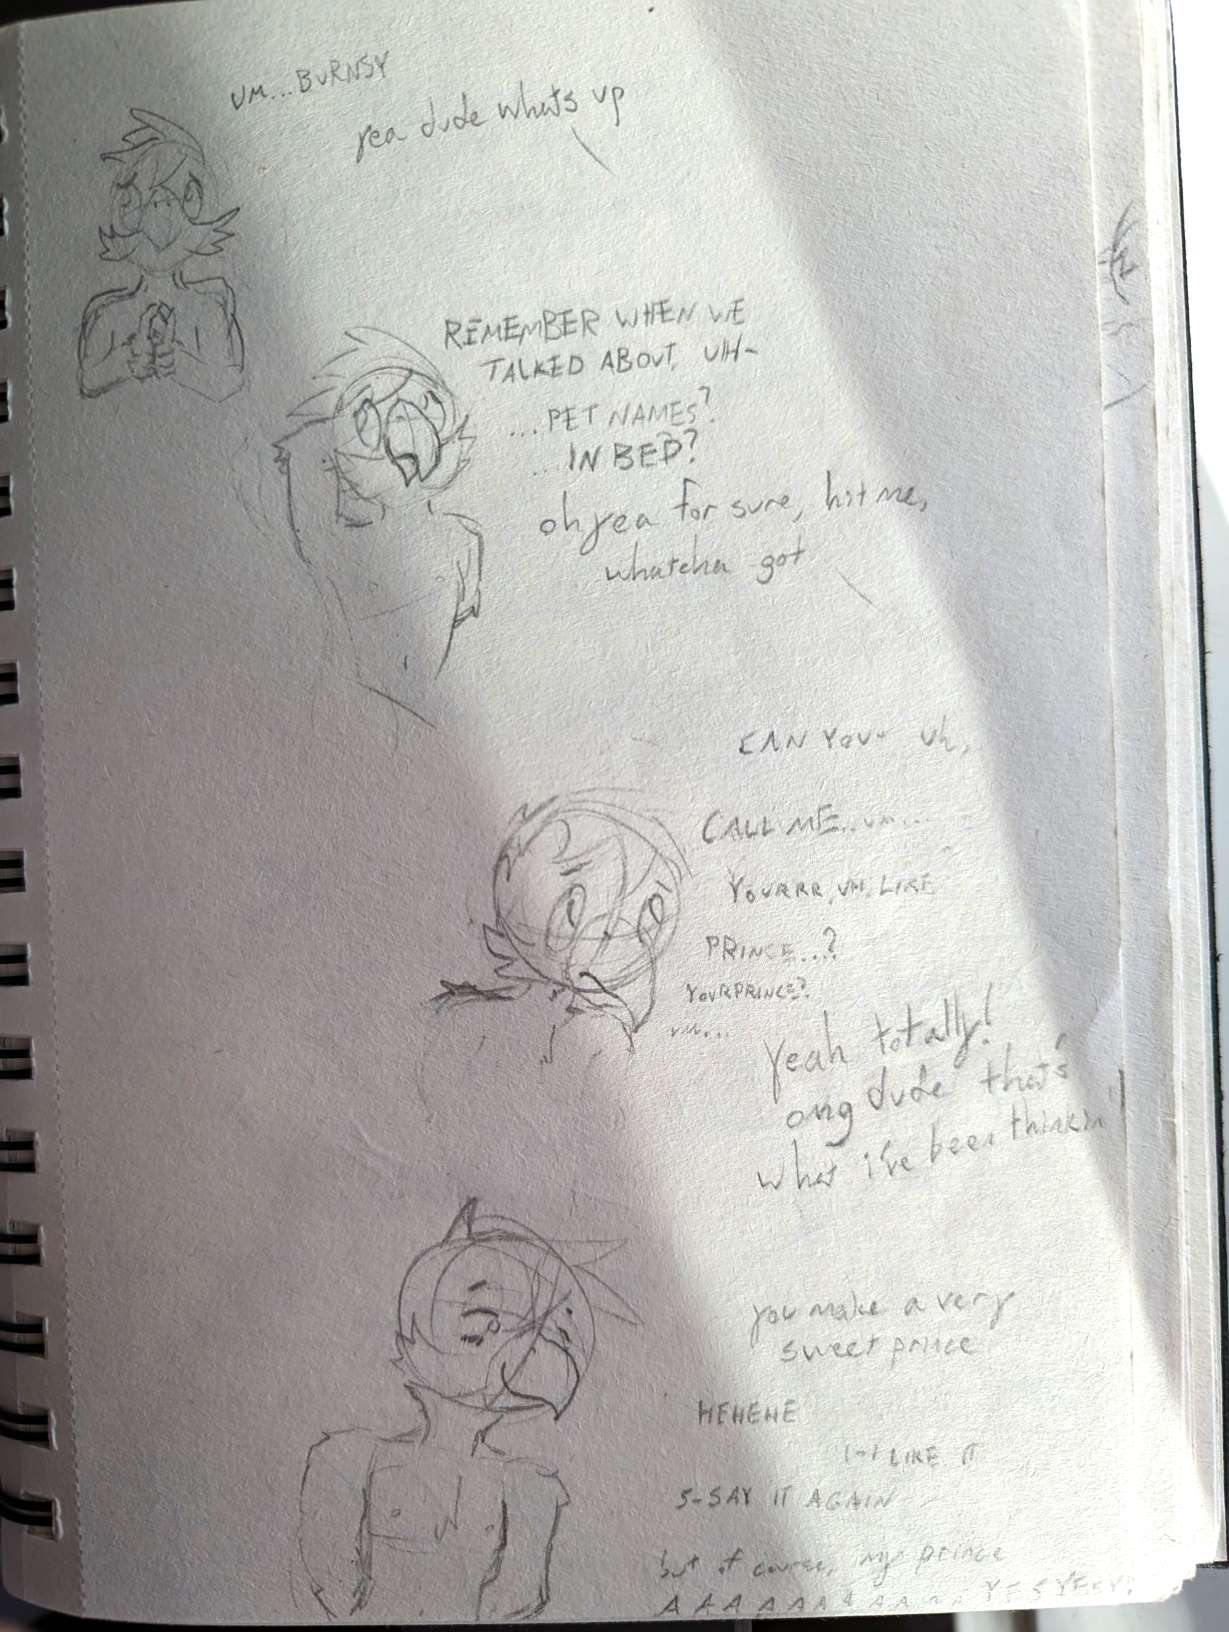 UM...BURNSY
yea dude whats up
REMEMBER WHEN WE
TALKED ABOUT, UH-
...PET NAMES?
...IN BED?
oh yea for sure, hit me,
whatcha got
CAN YOU- Uh,
CALL ME..um...
YOURRR, UH, LIKE
PRINCE...?
YOURPRINCE?
um...
Yeah totally!
omg dude that's
what i've been thinkin'
you make a very
sweet prince
HEHEHE
I-I LIKE IT
S-SAY IT AGAIN
but of course, my prince